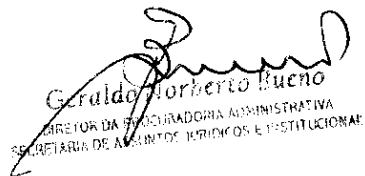 Geraldo Norberto Bueno
DIRETOR DA PROCURADORIA ADMINISTRATIVA
SECRETARIA DE ASSUNTOS JURIDICOS E INSTITUCIONAIS